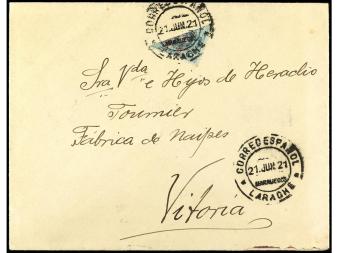 CORREO ESPAÑOL
21.JUN.21
MARRUECOS
LARACHE
Sra. Vda e Hijos de Heraclio
Fournier
Fábrica de Naipes
CORREO ESPAÑOL
21.JUN.21
MARRUECOS
LARACHE
Vitoria